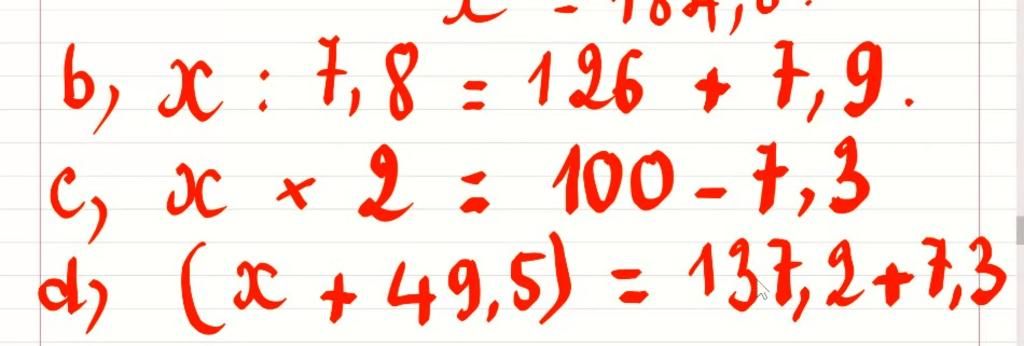 b, x : 7,8 = 126 + 7,9.
c, x × 2 = 100 - 7,3
d, (x + 49,5) = 137,2 + 7,3